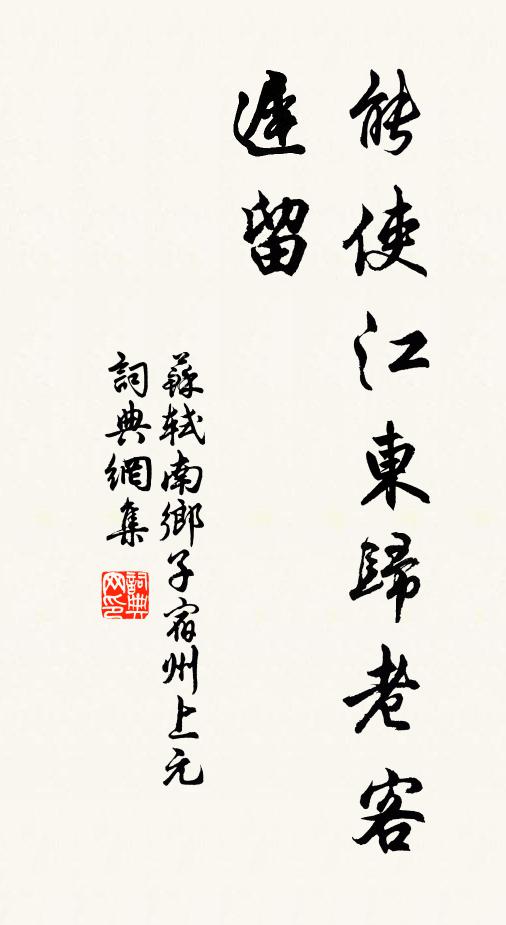 能使江東歸老客
遲留
蘇軾南鄉子宿州上元
詞典網集
詞典
网印